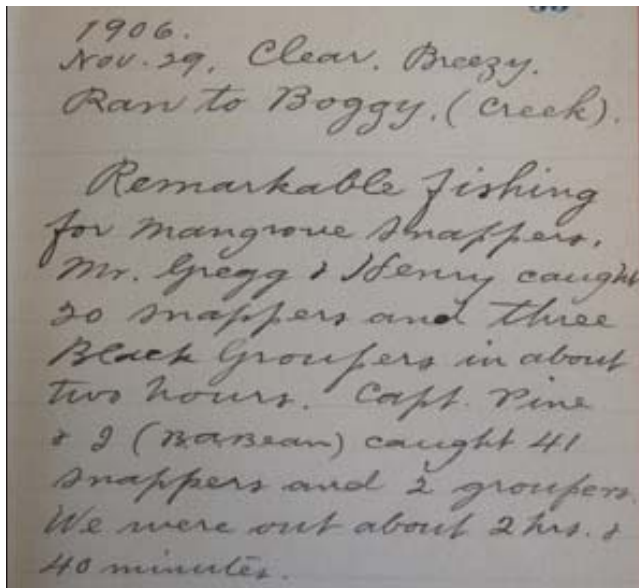 1906.
Nov. 29, Clear. Breezy.
Ran to Boggy. (Creek).
Remarkable fishing
for mangrove snappers.
Mr. Gregg & Henry caught
20 snappers and three
Black Groupers in about
two hours. Capt. Pine
& I (BaBean) caught 41
snappers and 2 groupers.
We were out about 2 hrs. &
40 minutes.